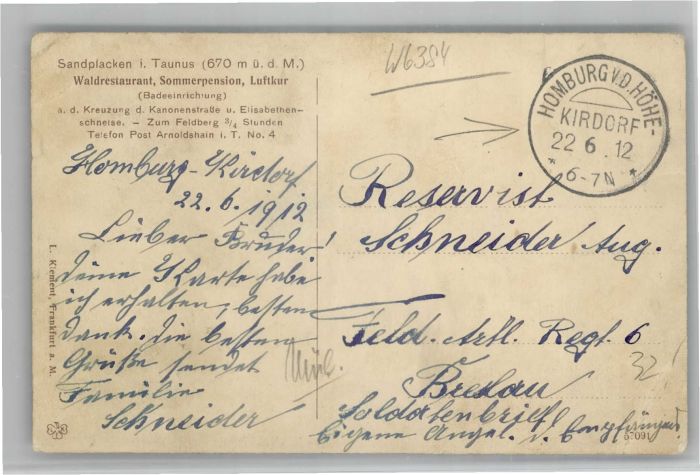 Sandplacken i. Taunus (670 m ü. d. M.)
Waldrestaurant, Sommerpension, Luftkur
(Badeeinrichtung)
a. d. Kreuzung d. Kanonenstraße u. Elisabethen-
schneise. — Zum Feldberg ¾ Stunden
Telefon Post Arnoldshain i. T. No. 4
Homburg-Kirdorf
22.6.1912
Lieber Bruder!
deine Karte habe
ich erhalten, besten
dank. die besten
Grüße sendet
Familie
Schneider
L. Klement, Frankfurt a. M.
W6384
HOMBURG V.D. HÖHE-
KIRDORF
22 6. 12
* 6-7N *
Reservist
Schneider Aug.
Feld. Artl. Regt. 6
32
Breslau
Soldatenbrief
Eigene Angel. d. Empfängers
57091